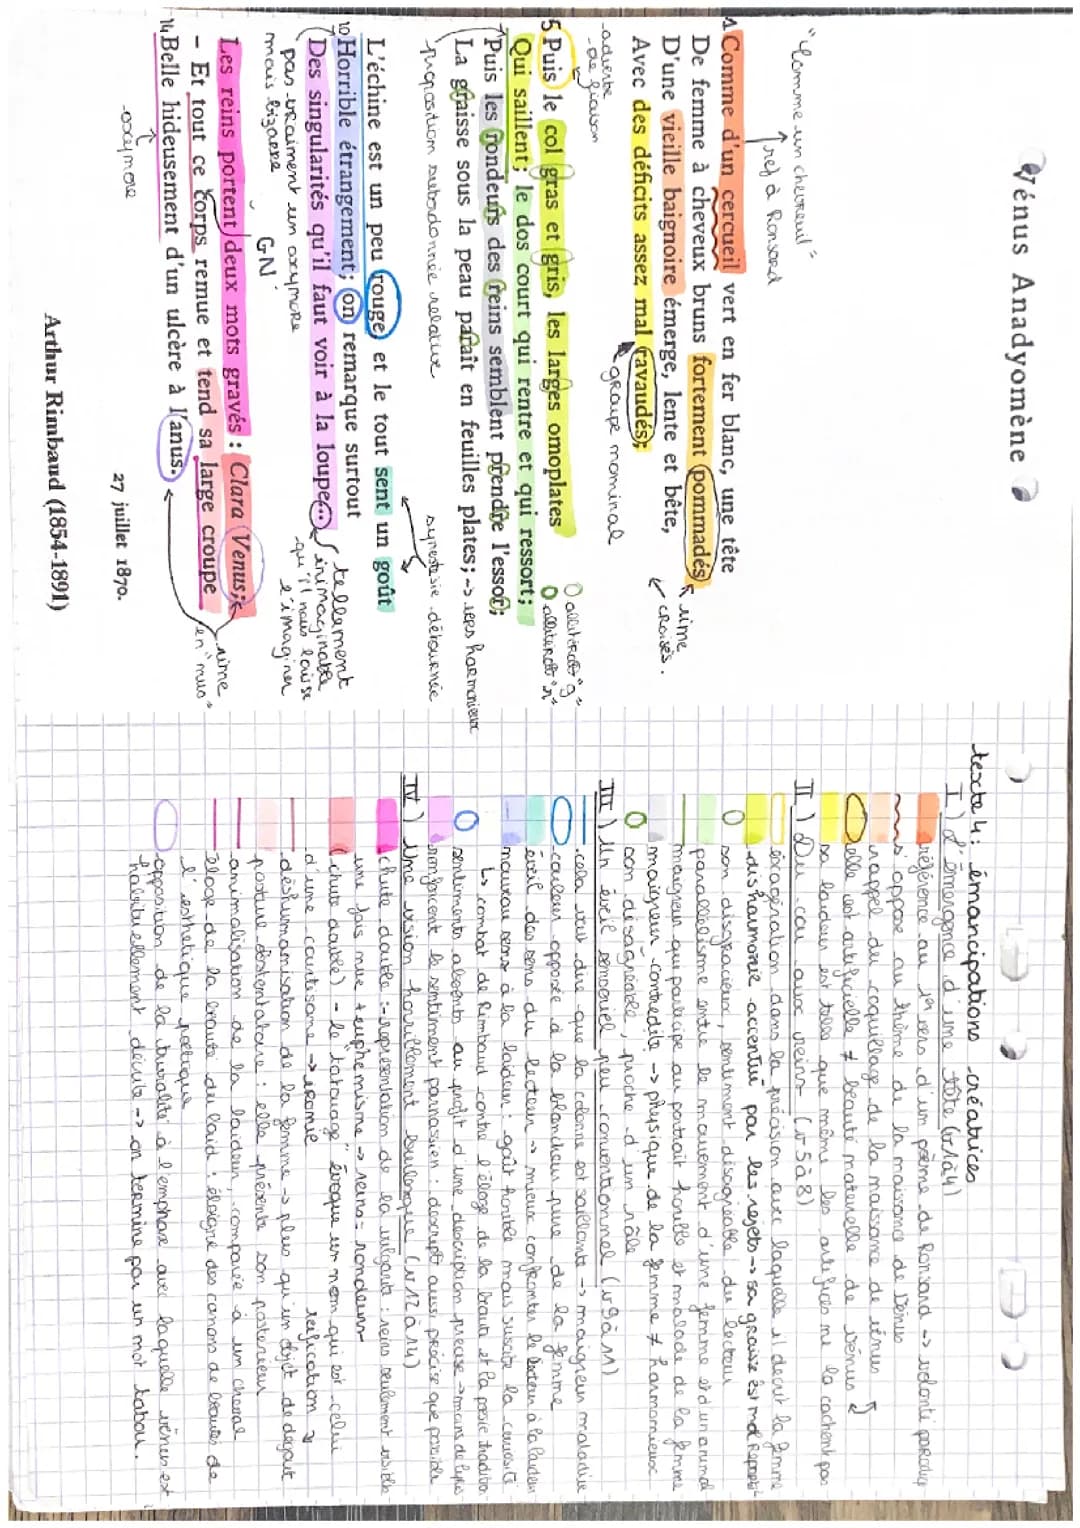 Vénus Anadyomène
"Comme un chevreuil"
ref à Ronsard
1 Comme d'un cercueil vert en fer blanc, une tête
De femme à cheveux bruns fortement pommadés
rime croisés.
D'une vieille baignoire émerge, lente et bête,
Avec des déficits assez mal ravaudés;
groupe nominal
-adverbe
-de liaison
5 Puis le col gras et gris, les larges omoplates
allitérat° "g"
allitérat° "r"
Qui saillent; le dos court qui rentre et qui ressort;
Puis les rondeurs des reins semblent prendre l'essor;
La graisse sous la peau paraît en feuilles plates; -> vers harmonieux
proposition subordonnée relative
synestésie détournée
L'échine est un peu rouge et le tout sent un goût
10 Horrible étrangement; on remarque surtout
Des singularités qu'il faut voir à la loupe...
tellement inimaginable
-qu'il nous laisse l'imaginer
pas vraiment un oxymore
mais bizarre
GN
Les reins portent deux mots gravés : Clara Venus;
- Et tout ce corps remue et tend sa large croupe
rime en "nus"
14 Belle hideusement d'un ulcère à l'anus.
-oxymore
27 juillet 1870.
Arthur Rimbaud (1854-1891)
texte 4: émancipations créatrices
I) L'émergence d'une tête (v1 à 4)
référence au 1er vers d'un poème de Ronsard -> volonté parodiq
s'oppose au thème de la naissance de Vénus
rappel du coquillage de la naissance de vénus
elle est artificielle ≠ beauté naturelle de vénus
sa laideur est telle que même les artifices ne la cachent pas
II) Du cou aux reins (v5 à 8)
éxagération dans la précision avec laquelle il décrit la femme
disharmonie accentué par les rejets -> sa graisse est mal répartit
son disgracieux, sentiment désagréable du lecteur
parallélisme entre le mouvement d'une femme et d'un animal
maigreur qui participe au portrait horrible et malade de la femme
maigreur contredite -> physique de la femme ≠ harmonieux
son désagréable, proche d'un râle
III) Un éveil sensoriel peu conventionnel (v9 à 11)
cela veut dire que la colonne est saillante -> maigreur maladive
couleur opposée à la blancheur pure de la femme
éveil des sens du lecteur -> mieux confronter le lecteur à la laideur
nouveau sens à la laideur : goût horrible mais suscite la curiosité
↳ combat de Rimbaud contre l'éloge de la beauté et la poésie traditio
sentiments absents au profit d'une description précise -> moins de lyris
renforcent le sentiment parnassien : descript° aussi précise que possible
IV) Une vision horriblement burlesque (v12 à 14)
chute double :- représentation de la vulgarité : reins seulement visible
une fois nue + euphémisme -> reins = rondeurs
(chute double) - le tatouage évoque un nom qui est celui
d'une courtisane -> ironie
réification
déshumanisation de la femme -> plus qu'un objet de dégout
posture désobentatoire : elle présente son postérieur
animalisation de la laideur, comparée à un cheval
éloge de la beauté du laid : éloigné des canons de beautés de
l'esthétique poétique
opposition de la trivialité à l'emphase avec laquelle vénus est
habituellement décrite -> on termine par un mot tabou.